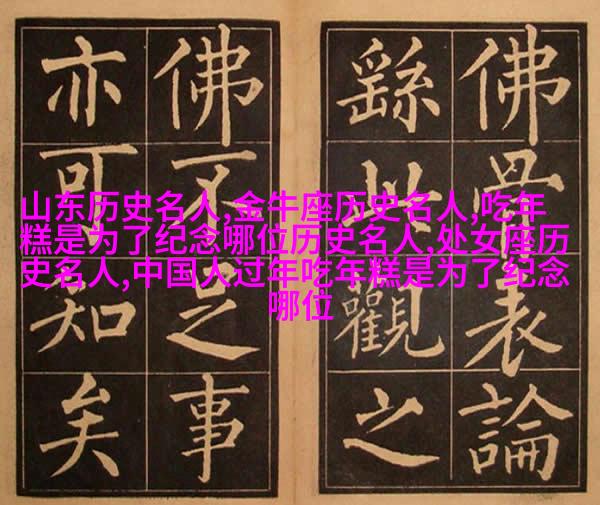 山东历史名人,金牛座历史名人,吃年
糕是为了纪念哪位历史名人,处女座历
史名人,中国人过年吃年糕是为了纪念
哪位
佛骨表論
繇此觀之
佛不足事
亦可知矣